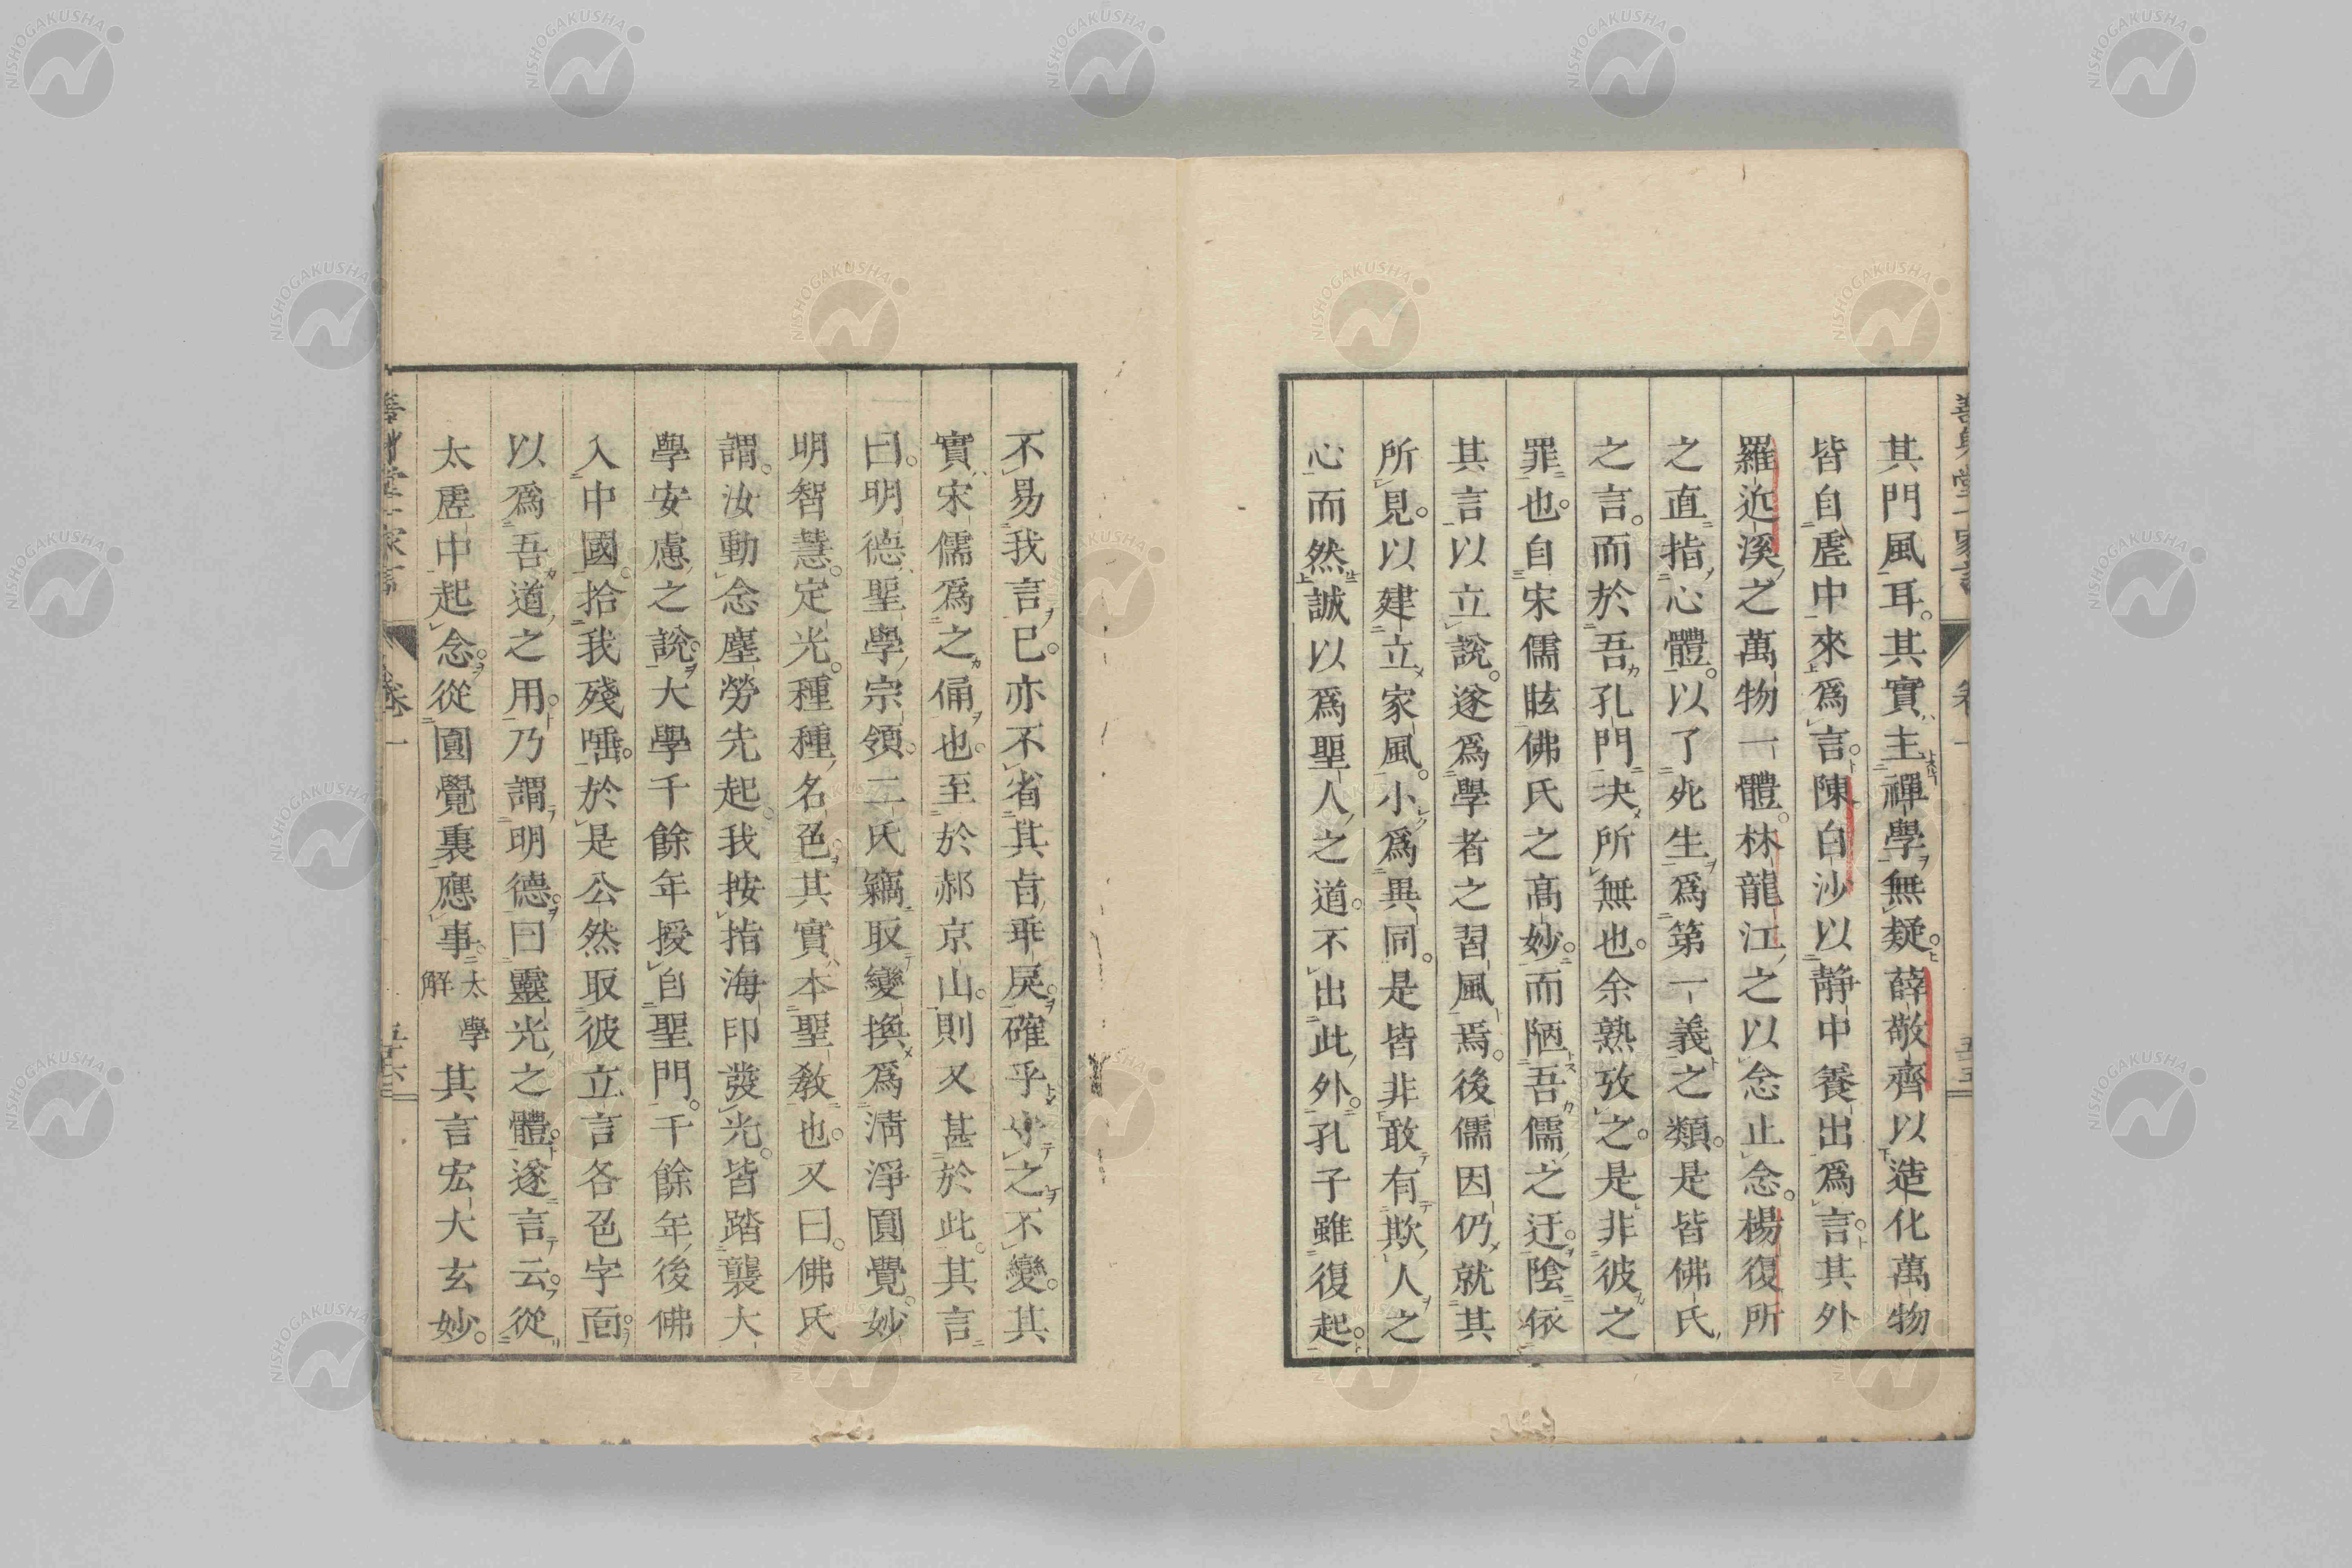 其門風耳。其實主禪學無疑。薛敬齊以造化萬物
皆自虛中來爲言。陳白沙以靜中養出爲言。其外
羅近溪之萬物一體。林龍江之以念止念。楊復所
之直指心體。以了死生爲第一義之類。是皆佛氏
之言。而於吾孔門决所無也。余熟攷之。是非彼之
罪也。自宋儒眩佛氏之高妙。而陋吾儒之迂。陰依
其言以立說。遂爲學者之習風焉。後儒因仍就其
所見。以建立家風。小爲異同。是皆非敢有欺人之
心而然。誠以爲聖人之道。不出此外。孔子雖復起。
不易我言已。亦不省其旨乖戾。確乎守之不變。其
實宋儒爲之俑也。至於郝京山。則又甚於此。其言
曰。明德聖學宗領。二氏竊取變換爲淸淨圓覺。妙
明智慧。定光。種種名色。其實本聖教也。又曰。佛氏
謂。汝動念塵勞先起。我按指海印發光。皆踏襲大
學安慮之說。大學千餘年授自聖門。千餘年後佛
入中國。拾我殘唾。於是公然取彼立言各色字面。
以爲吾道之用。乃謂明德。曰靈光之體。遂言云。從
太虛中起念。從圓覺裏應事。太學解其言宏大玄妙。
卷一